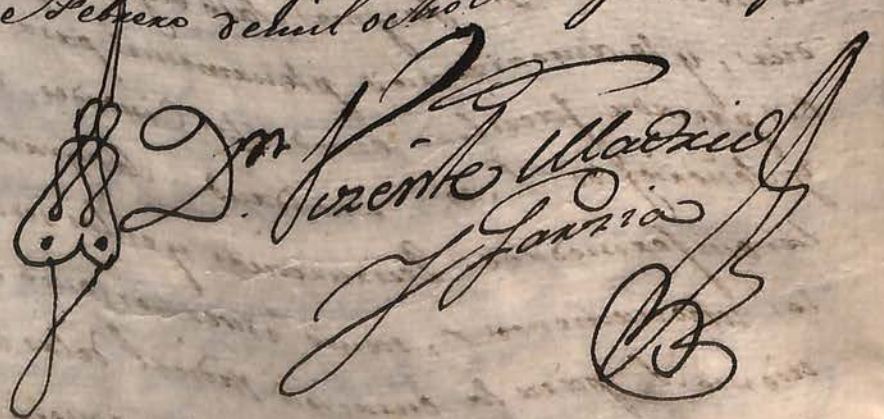 Febrero de mil ocho
Dn. Vizente Madrid
y Garzia